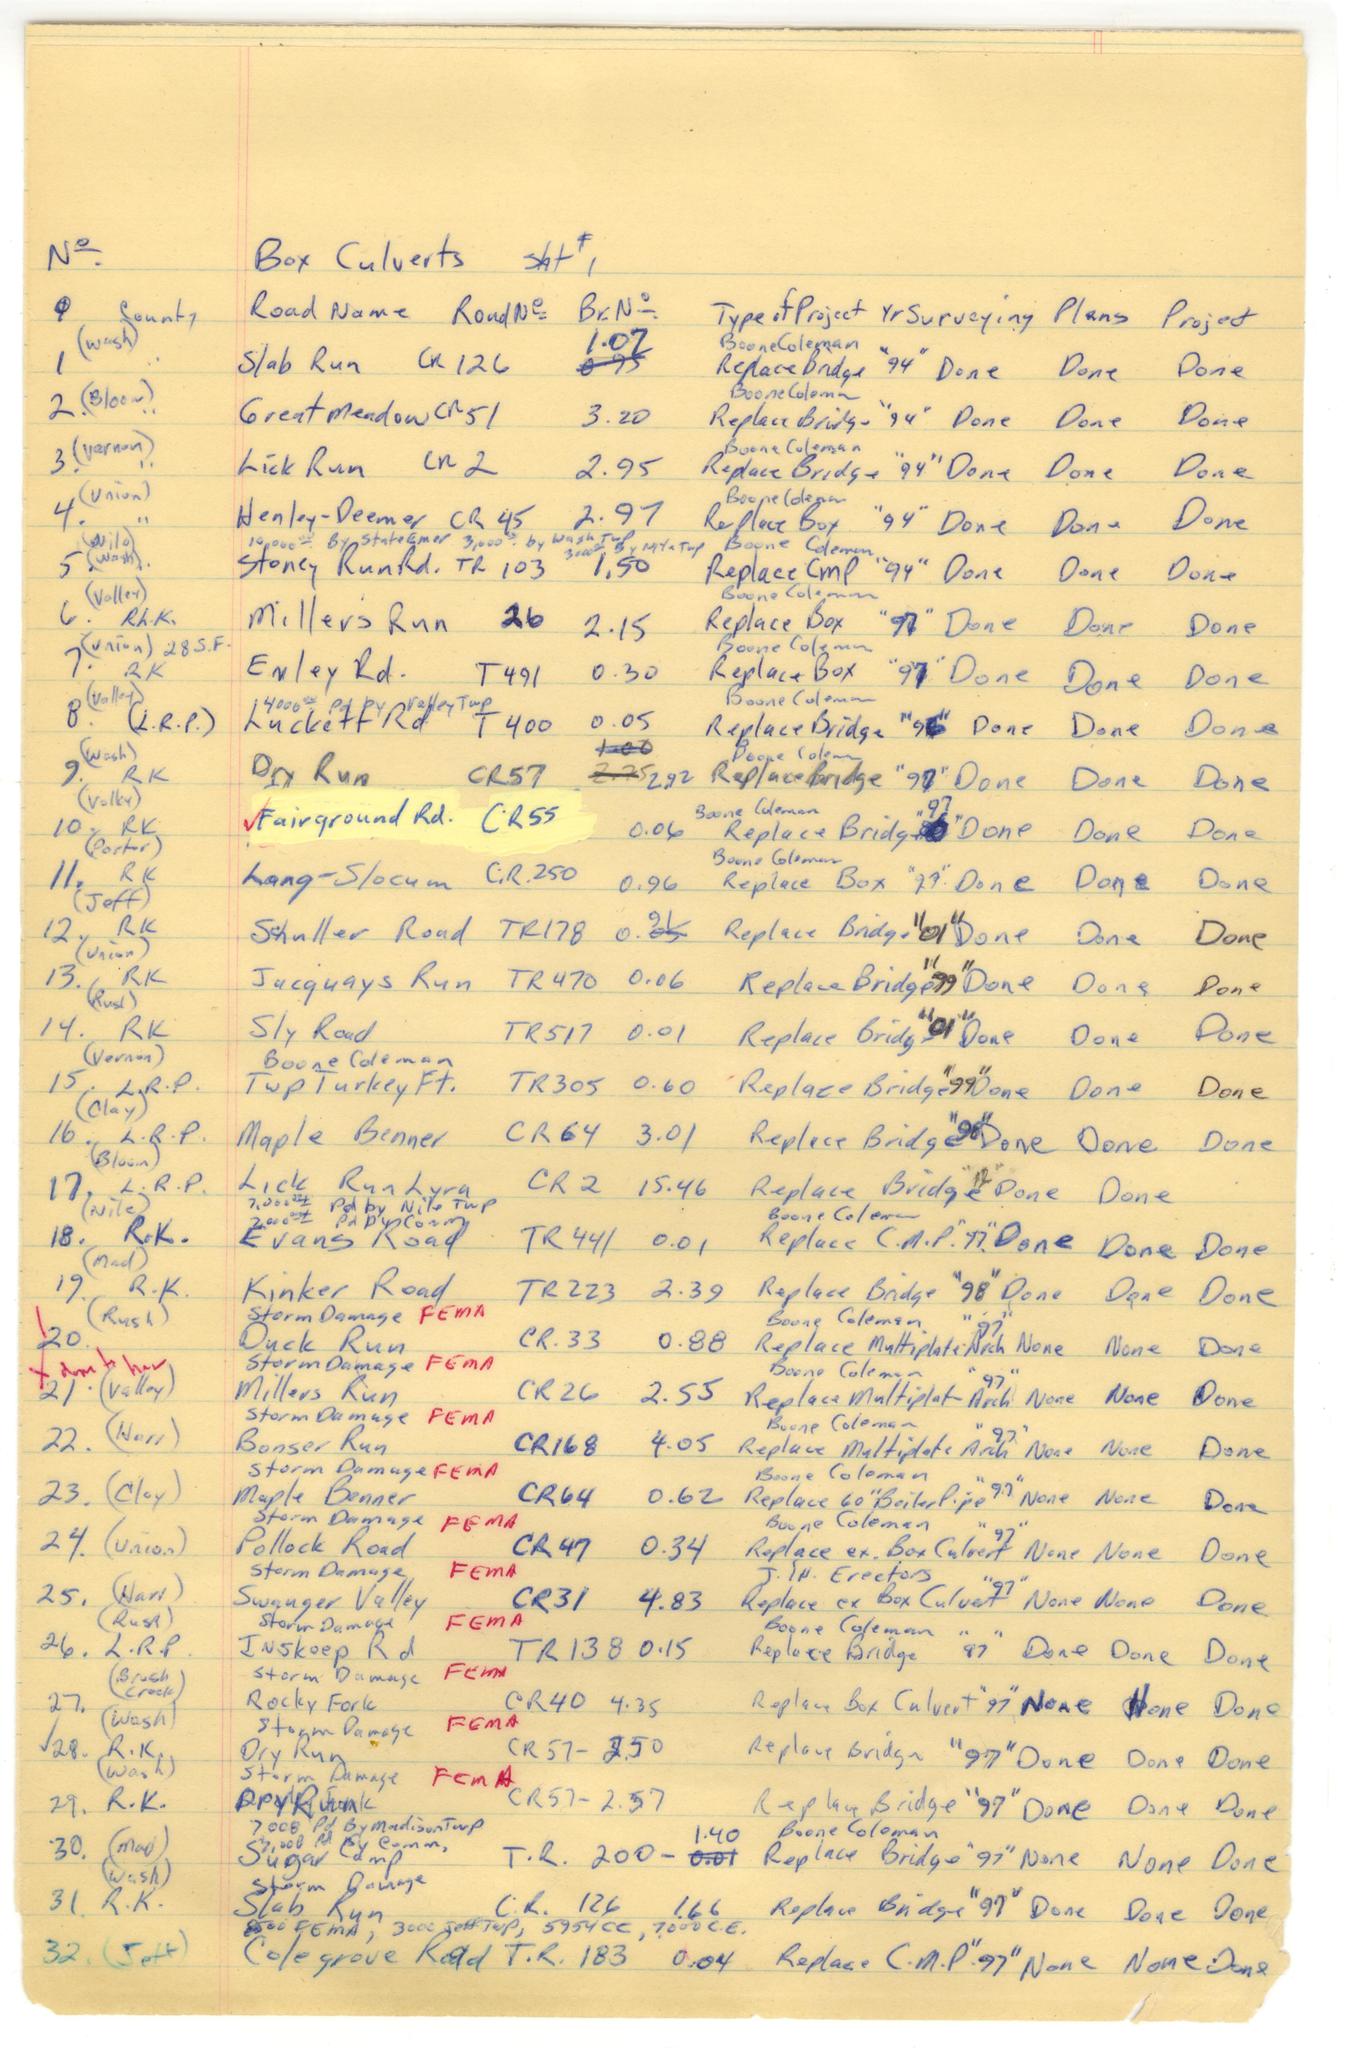 Nº. Box Culverts sht #1
County Road Name Road Nº Br. Nº Type of Project Yr Surveying Plans Project
(Wash) 1.07 Boone Coleman
1 " Slab Run CR 126 0.95 Replace Bridge "94" Done Done Done
(Bloom) Boone Coleman
2. " Great Meadow CR 51 3.20 Replace Bridge "94" Done Done Done
(Vernon) Boone Coleman
3. " Lick Run CR 2 2.95 Replace Bridge "94" Done Done Done
(Union) Boone Coleman
4. " Henley-Deemer CR 45 2.97 Replace Box "94" Done Done Done
(Nile) 10,000 By State Emer 3,000 by Wash Twp 3000 By Twp Boone Coleman
5 (Wash). Stoney Run Rd. TR 103 1.50 Replace CMP "94" Done Done Done
(Valley) Boone Coleman
6. R.K. Millers Run 26 2.15 Replace Box "97" Done Done Done
(Union) 28 S.F. Boone Coleman
7. RK Enley Rd. T491 0.30 Replace Box "97" Done Done Done
(Valley) 4000 Pd by Valley Twp Boone Coleman
8. (L.R.P.) Luckett Rd T400 0.05 Replace Bridge "96" Done Done Done
(Wash) 1.00 Boone Colem
9. RK Dry Run CR57 2.75 2.92 Replace Bridge "97" Done Done Done
(Valley) Boone Coleman "97
10. RK Fairground Rd. CR55 0.06 Replace Bridge " Done Done Done
(Porter) Boone Coleman
11. RK Lang-Slocum C.R. 250 0.96 Replace Box "97" Done Done Done
(Jeff)
12. RK Shuller Road TR178 0. Replace Bridge "01" Done Done Done
(Union)
13. RK Jacquays Run TR470 0.06 Replace Bridge "99" Done Done Done
(Rush)
14. RK Sly Road TR517 0.01 Replace Bridge "01" Done Done Done
(Vernon) Boone Coleman
15. L.R.P. Twp Turkey Ft. TR305 0.60 Replace Bridge "99" Done Done Done
(Clay)
16. L.R.P. Maple Benner CR64 3.01 Replace Bridge "98" Done Done Done
(Bloom)
17. L.R.P. Lick Run Lyra CR2 15.46 Replace Bridge Done Done
(Nile) 7,000 Pd by Nile Twp Boone Coleman
7,000 Pd by Comm
18. R.K. Evans Road TR 441 0.01 Replace C.M.P. "97" Done Done Done
(Mad)
19. R.K. Kinker Road TR223 2.39 Replace Bridge "98" Done Done Done
(Rush) Storm Damage FEMA Boone Coleman "97"
20. Duck Run CR. 33 0.88 Replace Multiplate Arch None None Done
Storm Damage FEMA Boone Coleman "97"
21. (Valley) Millers Run CR26 2.55 Replace Multiplat Arch None None Done
Storm Damage FEMA Boone Coleman "97"
22. (Harr) Bonser Run CR168 4.05 Replace Multiplate Arch None None Done
Storm Damage FEMA Boone Coleman
23. (Clay) Maple Benner CR64 0.62 Replace 60" Boiler Pipe "97" None None Done
Storm Damage FEMA Boone Coleman
24. (Union) Pollock Road CR47 0.34 Replace ex. Box Culvert "97" None None Done
Storm Damage FEMA J.H. Erectors
25. (Harr) Swauger Valley CR31 4.83 Replace ex Box Culvert "97" None None Done
(Rush) Storm Damage FEMA Boone Coleman
26. L.R.P. Inskoep Rd TR 138 0.15 Replace Bridge "97" Done Done Done
(Brush Creek) Storm Damage FEMA
27. Rocky Fork CR40 4.35 Replace Box Culvert "97" None None Done
(Wash) Storm Damage FEMA
√28. R.K. Dry Run CR57- 2.50 Replace Bridge "97" Done Done Done
(Wash) Storm Damage FEMA
29. R.K. Dry Run CR57- 2.57 Replace Bridge "97" Done Done Done
7000 Pd By Madison Twp 1.40 Boone Coleman
7,000 Pd By Comm,
30. (Mad) Sugar Camp T.R. 200- 0.01 Replace Bridge "97" None None Done
(Wash) Storm Damage
31. R.K. Slab Run C.R. 126 1.66 Replace Bridge "97" Done Done Done
FEMA, 3000 Jeff Twp, 5954 CC, 7000 C.E.
32. (Jeff) Colegrove Road T.R. 183 0.04 Replace C.M.P "97" None None Done